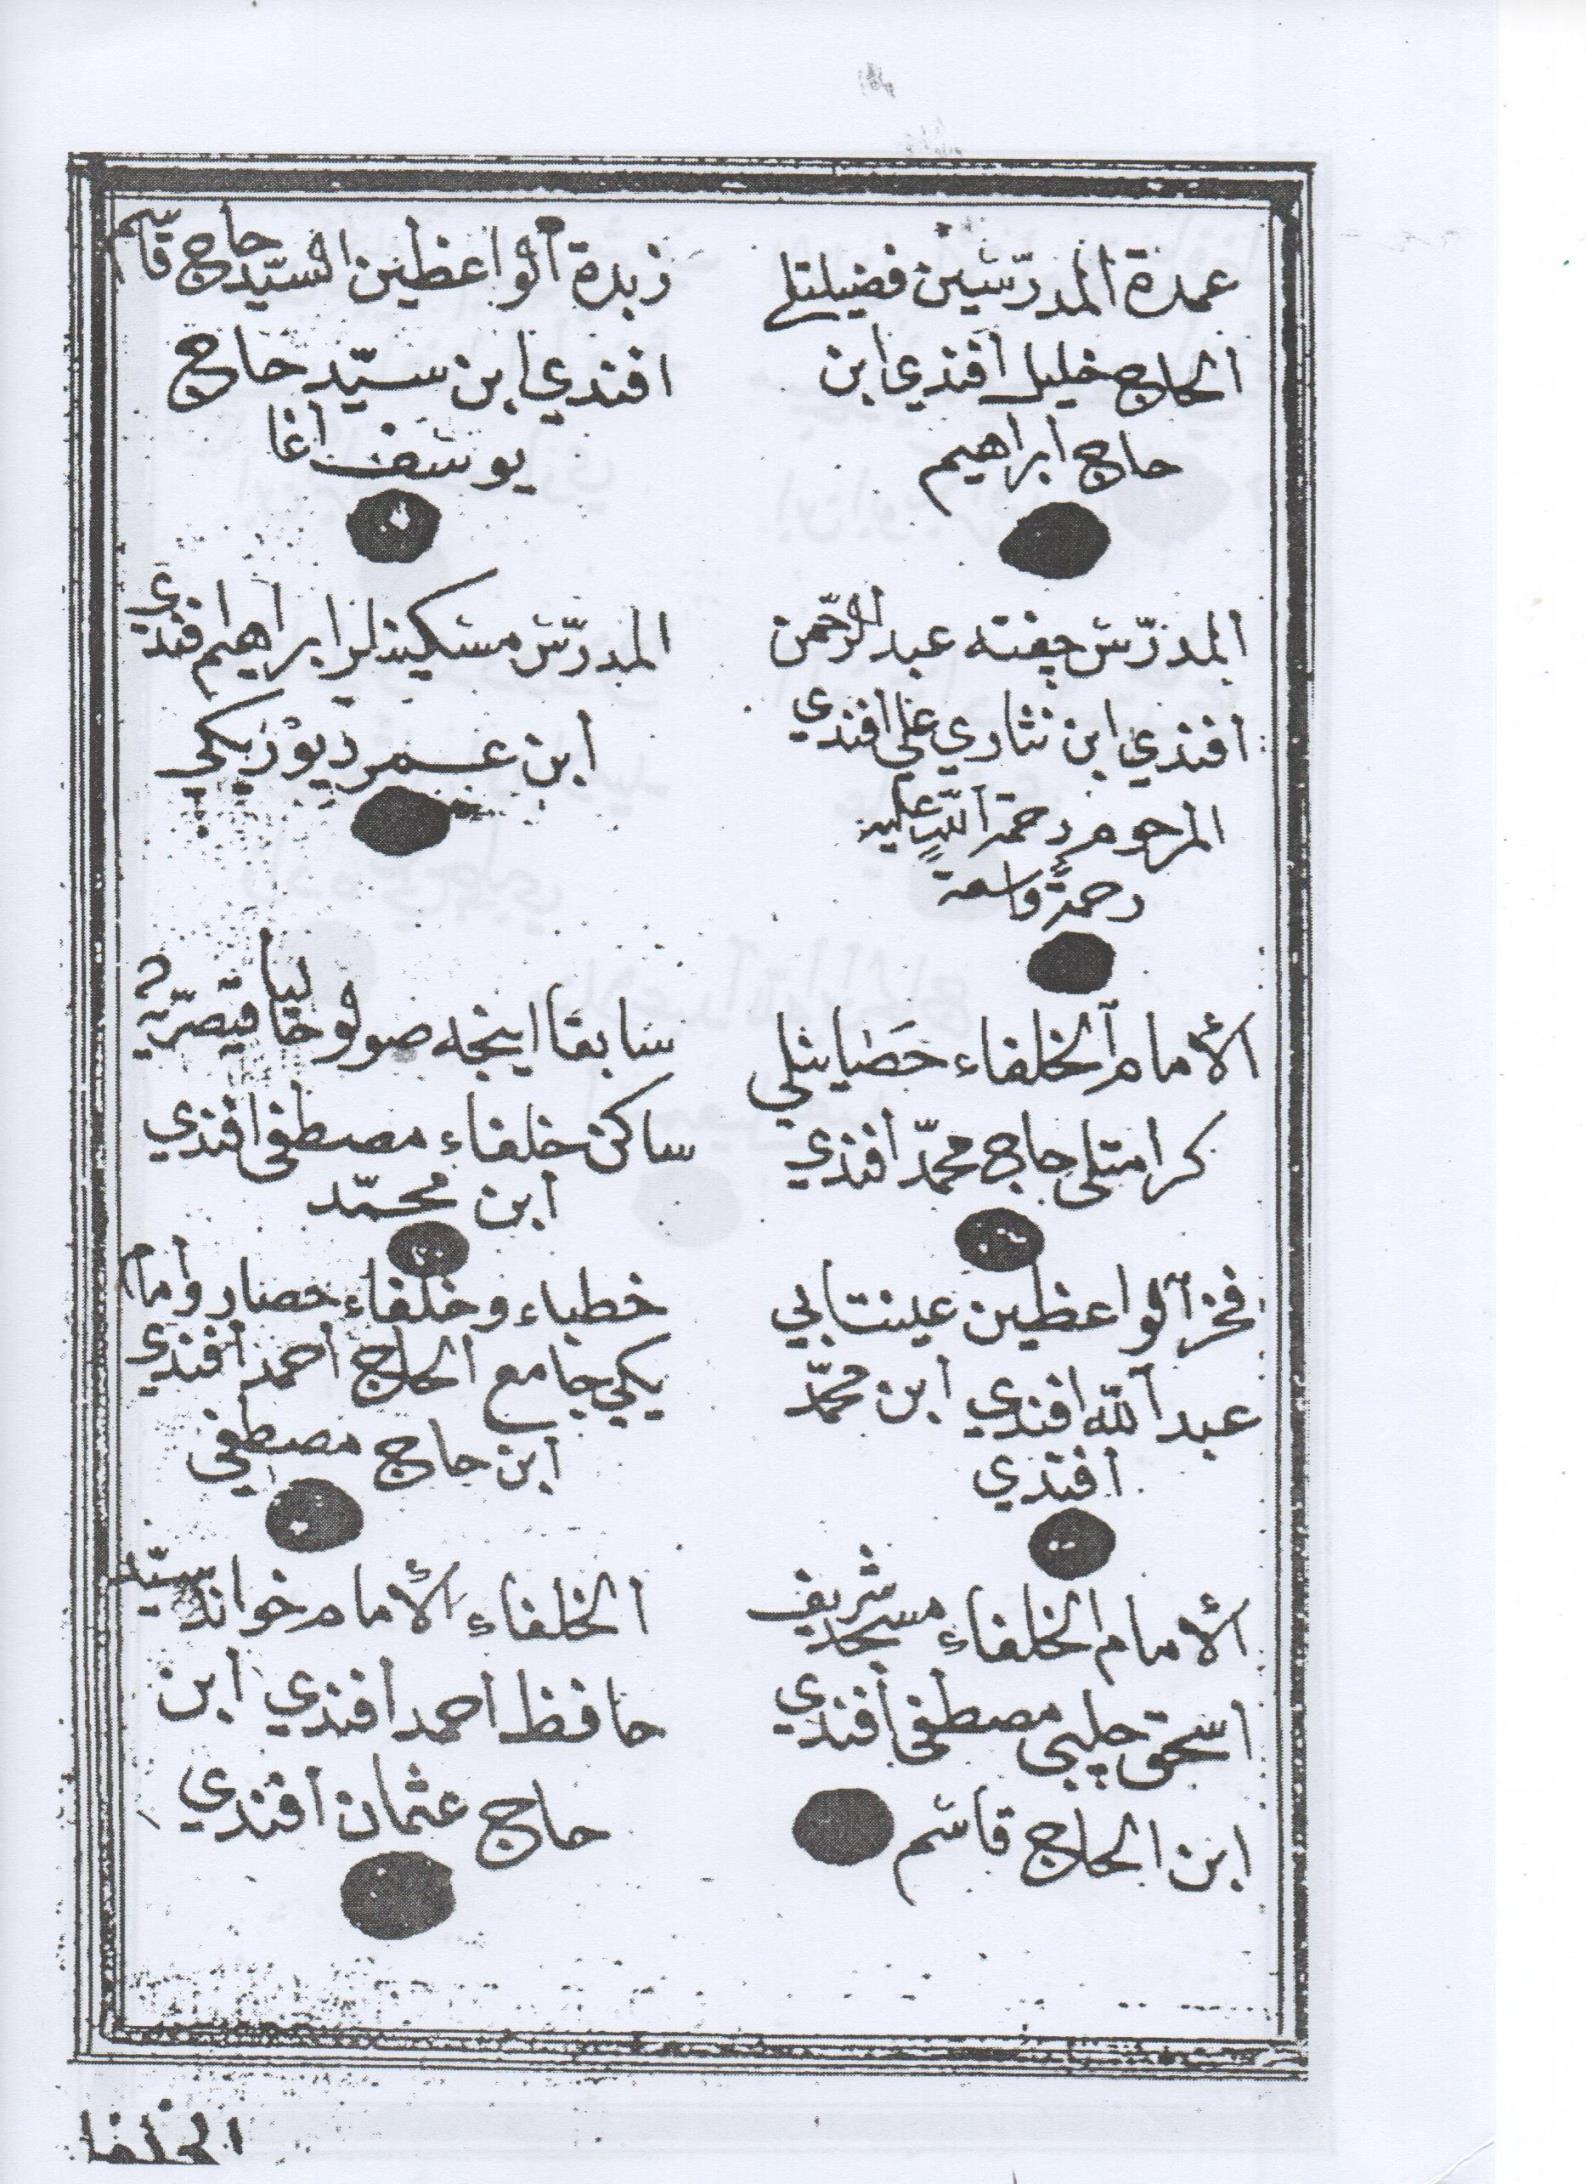 عمدة المدرّسين فضيلتلى
الحاج خليل افندي ابن
حاج ابراهيم
زبدة الواعظين السّيّد حاج قاسم
افندي ابن سيّد حاج
يوسف اغا
المدرّس چفته عبد الرّحمن
افندي ابن نثاري علي افندي
المرحوم رحمة اللّه عليه
رحمةً واسعة
المدرّس مسكينلر ابراهيم افندي
ابن عمر ديوريكي
الأمام الخلفاء حَصَاينلي
كرامتلى حاج محمّد افندي
سابقا اينجه صولو حَاليا قيصرّيه
ساكن خلفاء مصطفى افندي
ابن محمّد
فخر الواعظين عينتابي
عبد اللّه افندي ابن محمّد
افندي
خطباء وخلفاء حصار وامام
يكي جامع الحاج احمد افندي
ابن حاج مصطفى
الأمام الخلفاء مسجد شريف
اسحق چلبى مصطفى افندي
ابن الحاج قاسم
الخلفاء الأمام خواند سيّد
حافظ احمد افندي ابن
حاج عثمان افندي
الخلفا